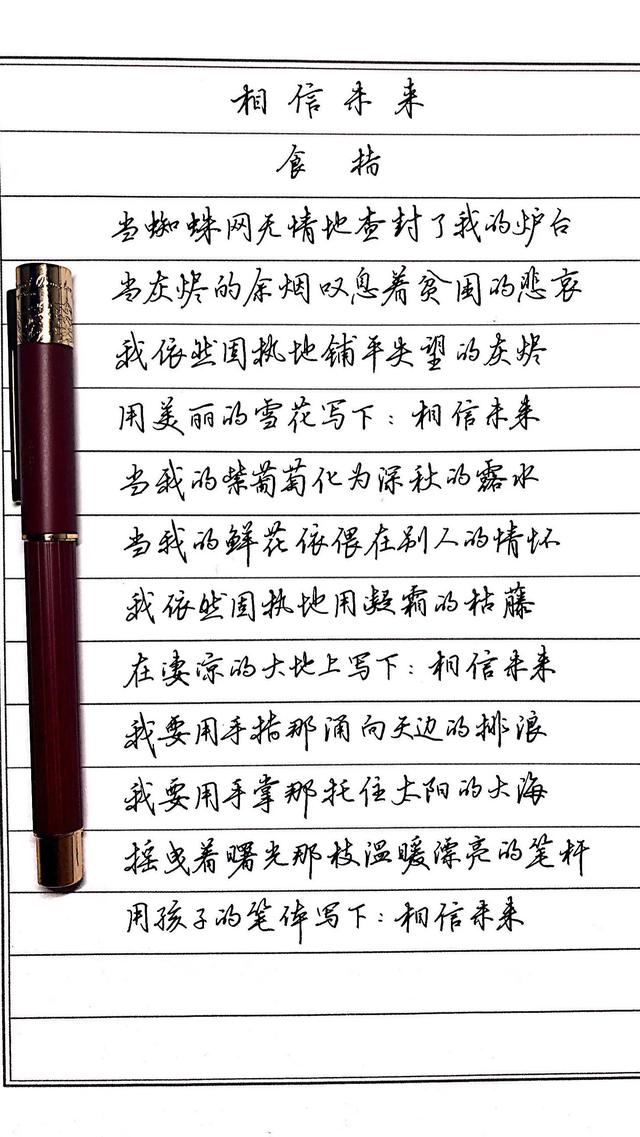 相信未来
食指
当蜘蛛网无情地查封了我的炉台
当灰烬的余烟叹息着贫困的悲哀
我依然固执地铺平失望的灰烬
用美丽的雪花写下：相信未来
当我的紫葡萄化为深秋的露水
当我的鲜花依偎在别人的情怀
我依然固执地用凝霜的枯藤
在凄凉的大地上写下：相信未来
我要用手指那涌向天边的排浪
我要用手掌那托住太阳的大海
摇曳着曙光那枝温暖漂亮的笔杆
用孩子的笔体写下：相信未来